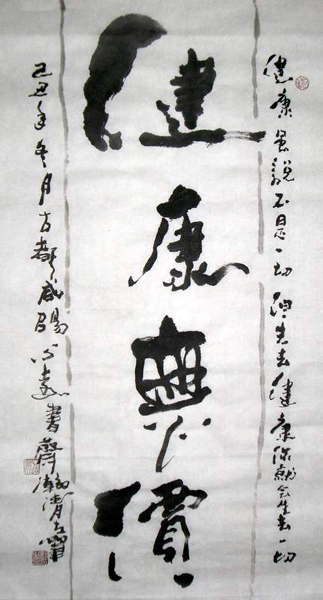 健康虽说不是一切 但失去健康你就会失去一切
健康無價
己丑年冬月古都咸陽
書